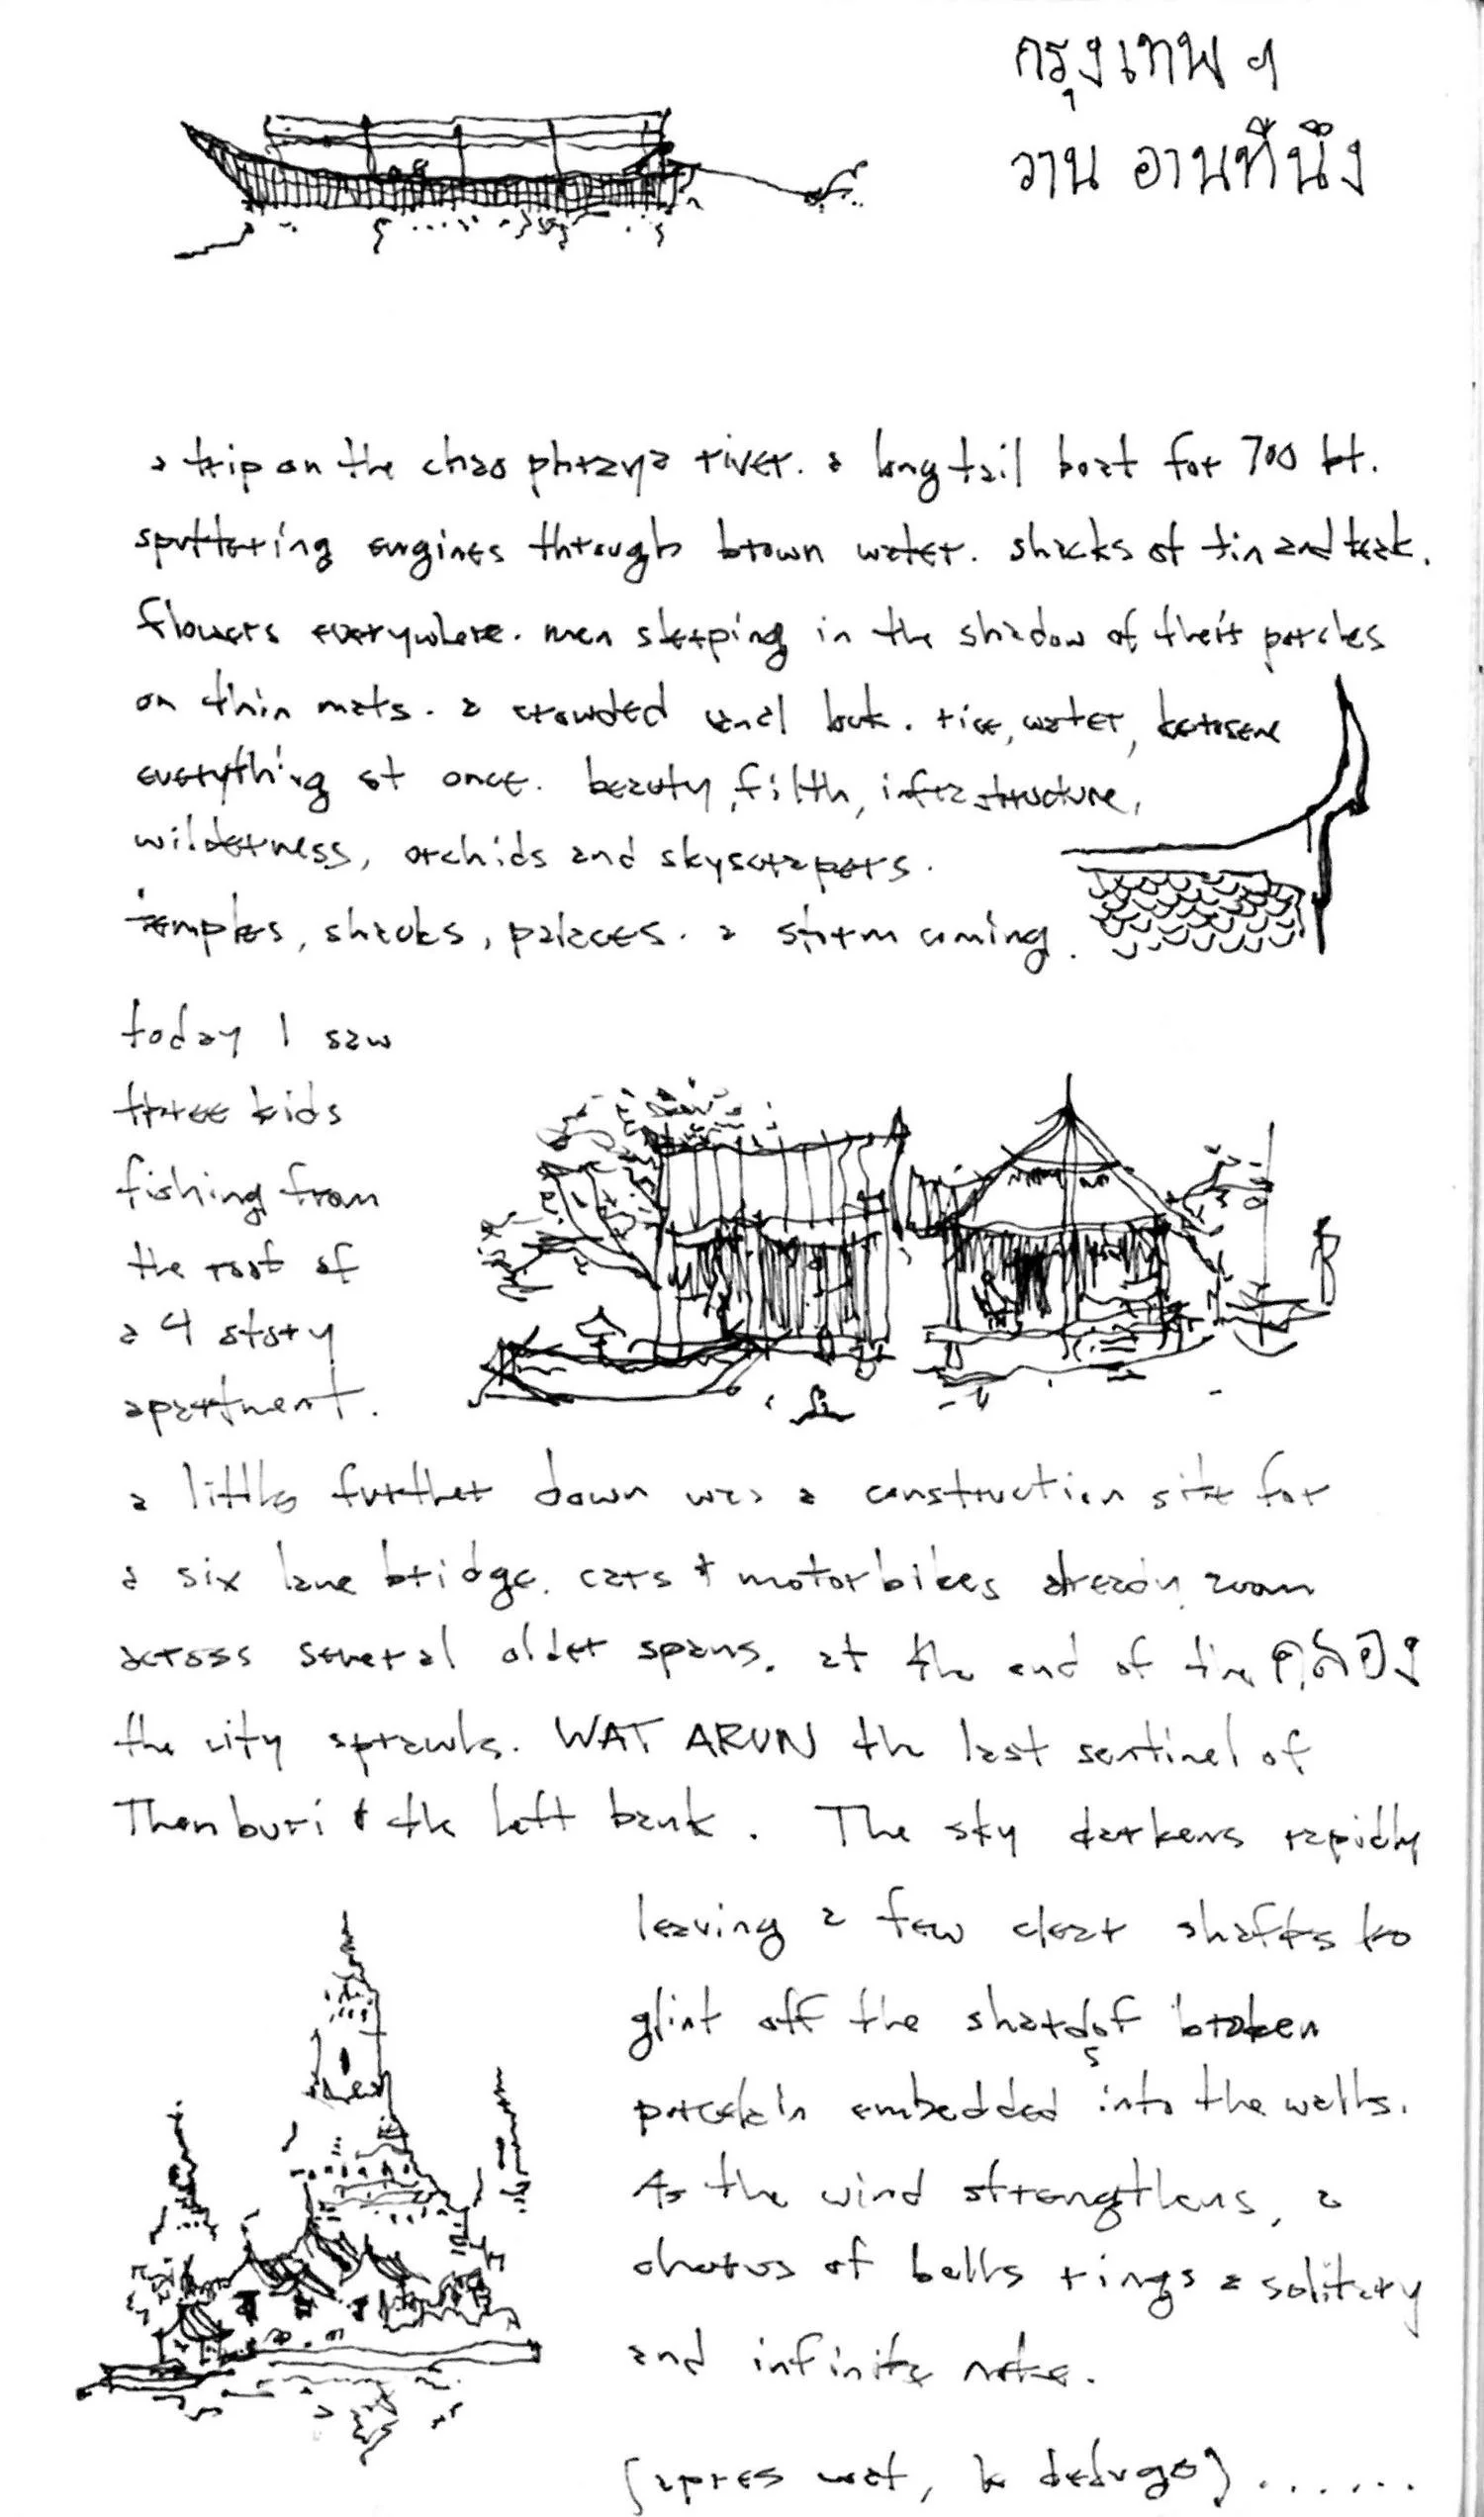 กรุงเทพ ฯ
วาน อานทีนึ่ง
a trip on the chao phraya river. a longtail boat for 700 bt.
sputtering engines through brown water. shacks of tin and teak.
flowers everywhere. men sleeping in the shadow of their porches
on thin mats. a crowded canal lock. rice, water, kerosene
everything at once. beauty, filth, infrastructure,
wilderness, orchids and skyscrapers.
temples, shacks, palaces. a storm coming.
today I saw
three kids
fishing from
the roof of
a 4 story
apartment.
a little further down was a construction site for
a six lane bridge. cars & motorbikes already zoom
across several older spans. at the end of the คลอง
the city sprawls. WAT ARUN the last sentinel of
Thonburi & the left bank. The sky darkens rapidly
leaving a few clear shafts to
glint off the shards of broken
porcelain embedded into the walls.
As the wind strengthens, a
chorus of bells rings a solitary
and infinite note.
(apres wat, le deluge) ......